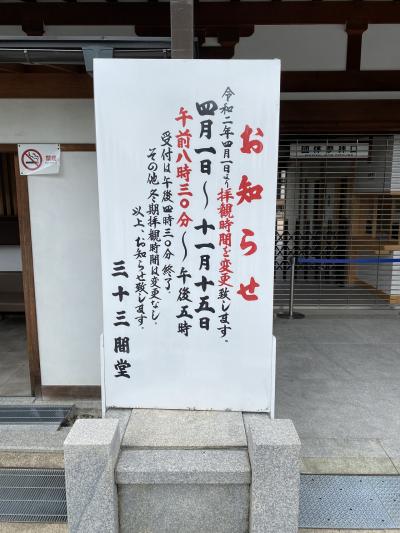 お知らせ
令和二年四月一日より拝観時間を変更致します。
四月一日〜十一月十五日
午前八時三〇分〜午後五時
受付は午後四時三〇分終了。
その他冬期拝観時間は変更なし。
以上、お知らせ致します。
三十三間堂
禁煙
団体受付口